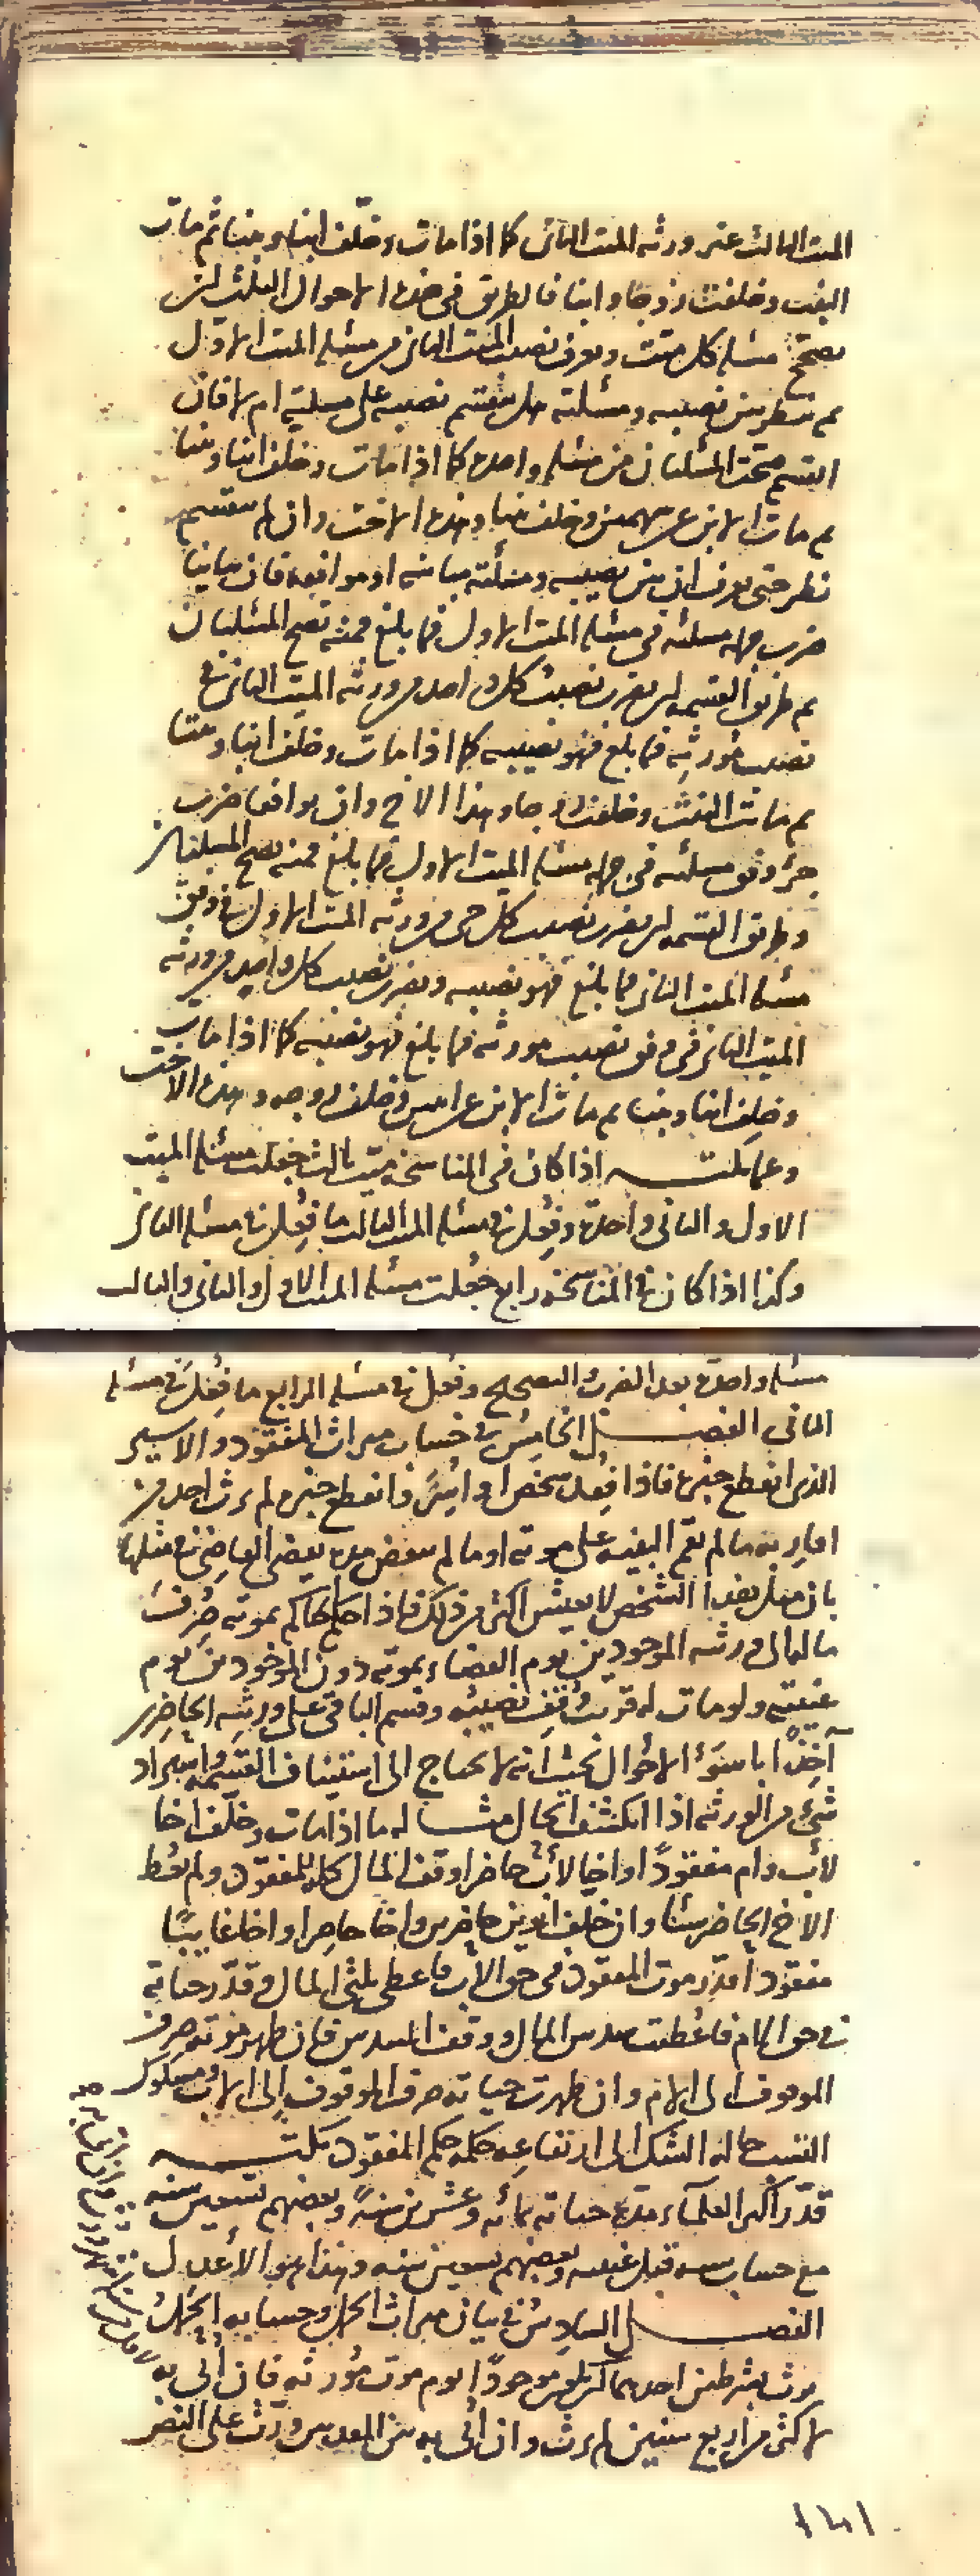 الميت الثالث غير ورثه الميت الثانى كما اذا مات وخلف ابنا وبنتا ثم مات
البنت وخلفت زوجا وابنا فالطريق فى هذه الاحوال الثلث ان
يصحح مسئله كل ميت ويعرف نصيب الميت الثانى من مسئله الميت الاول
ثم ينظر بين نصيبه ومسئلته هل ينقسم نصيبه على مسئلته ام لا فان
انقسم صحت المسئلتان من مسئله واحده كما اذا مات وخلف ابنا وبنتا
ثم مات الابن عن سهمين وخلف بنتا وهذه الاخت وان لم ينقسم
نظر حتى يعرف ان بين نصيبه ومسئلته مباينه او موافقه فان تباينا
ضرب جمله مسئلته فى مسئله الميت الاول فما بلغ فمنه تصح المسئلتان
ثم طريق القسمه ان يضرب نصيب كل واحد من ورثه الميت الثانى فى
نصيب مورثه فما بلغ فهو نصيبه كما اذا مات وخلف ابنا وبنتا
ثم ماتت البنت وخلفت زوجا وهذا الاخ وان توافقا ضرب
جزؤ وفق مسئلته فى جمله مسئله الميت الاول فما بلغ فمنه تصح المسئلتان
وطريق القسمه ان يضرب نصيب كل حى من ورثه الميت الاول فى وفق
مسئله الميت الثانى فما بلغ فهو نصيبه ويضرب نصيب كل واحد من ورثه
الميت الثانى فى وفق نصيب مورثه فما بلغ فهو نصيبه كما اذا مات
وخلف ابنا وبنتا ثم مات الابن عن اثنين وخلف زوجه وهذه الاخت
وعما نكتـــه اذا كان فى المناسخه ميت ثالث جعلت مسئله الميت
الاول والثانى واحدة وفُعِل فى مسئله الميت الثالث ما فُعِل فى مسئله الثانى
وكذا اذا كان فى المناسخه رابع جُعلت مسئله الميت الاول والثانى والثالث
مسئله واحدة بعد الضرب والتصحيح وفُعل فى مسئله الرابع ما فُعِل فى مسئله
الثانى الفصــل الخامِسُ فى حساب ميراث المفقود والاسير
الذى انقطع خبره فاذا فُقِد شخص او اُسِرَ وانقطع خبره لم يرث احد من
اقاربه ما لم تقم البينه على موته او ما لم تمض مده يقضى القاضى فى مثلها
بان مثل هذا الشخص لا يعيش اكثر من ذلك فاذا حكم الحاكم بموته صُرِفَ
ماله الى ورثته الموجودين يوم القضاء بموته دون الموجودين يوم
غيبته ولو مات له قريب وُقِفَ نصيبه وقسم الباقى على ورثته الحاضرين
آخِذًا باسوَءِ الاحوال بحيث انه لا يحتاج الى استيناف القسمه واسترداد
شئ من الورثه اذا انكشف الحال مثــاله ما اذا مات وخلّف اخا
لاب وام مفقودًا واخا لأب حاضرا وقف المال كله للمفقود ولم يعط
الاخ الحاضر شئا وان خلف ابوين حاضرين واخا حاضرا واخا غايبًا
مفقودا قدّر موت المفقود فى حق الاب فاعطى ثلثى المال وقدّر حياته
فى حق الام فاعُطيت سدس المال ووقف السدس فان ظهر موته صرف
الموقوف الى الام وان ظهرت حياته صرف الموقوف الى الاب ومشكوك
النسب حاله الشك الى ارتفاعه حكمه حكم المفقود نكتـــه
قدّر اكثر العلمآء مدة حياته بمائه وعشرين سنهً وبعضهم بسبعين سنه
مع حساب سنه قبل غيبته وبعضهم بتسعين سنه وهذا هو الأعدل
الفصـــل السادِسُ فى بيان ميراث الحمل وحسابه الحَمْلُ
يرث بشرطين احدهما كونه موجودًا يوم موت مُورثه فان اُتى به
لاكثر من اربع سنين لم يرث وان اُتى به بين المدتين ورث على النص
١٨١